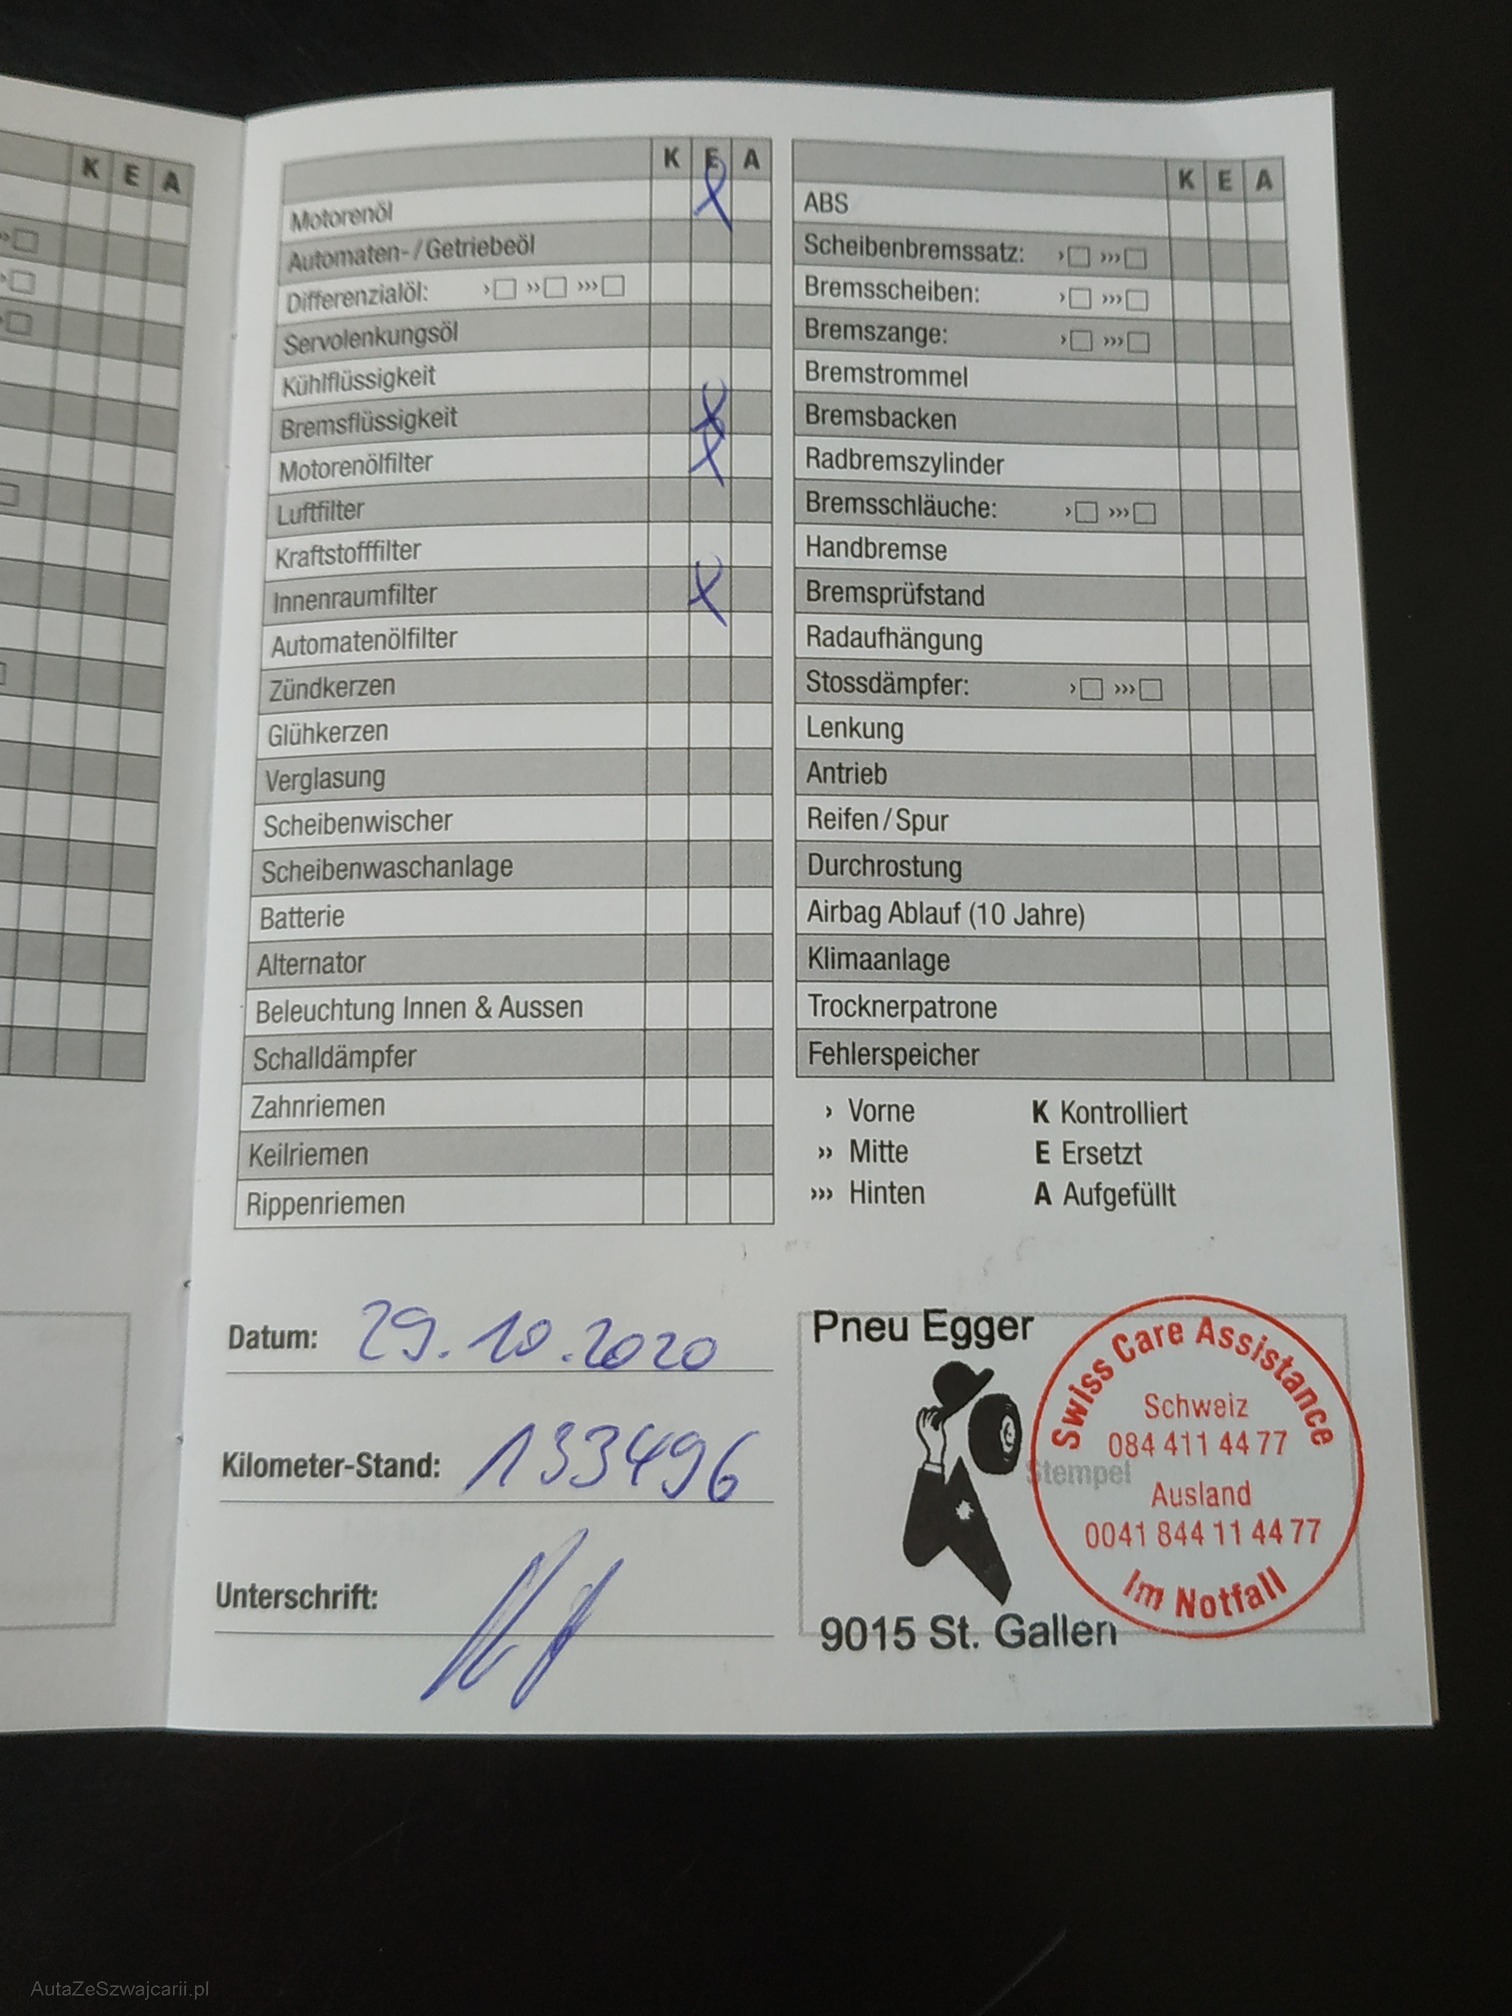 K E A
K E A
Motorenöl
Automaten-/Getriebeöl
Differenzialöl: › ›› ›››
Servolenkungsöl
Kühlflüssigkeit
Bremsflüssigkeit
Motorenölfilter
Luftfilter
Kraftstofffilter
Innenraumfilter
Automatenölfilter
Zündkerzen
Glühkerzen
Verglasung
Scheibenwischer
Scheibenwaschanlage
Batterie
Alternator
Beleuchtung Innen & Aussen
Schalldämpfer
Zahnriemen
Keilriemen
Rippenriemen
K E A
ABS
Scheibenbremssatz: › ›››
Bremsscheiben: › ›››
Bremszange: › ›››
Bremstrommel
Bremsbacken
Radbremszylinder
Bremsschläuche: › ›››
Handbremse
Bremsprüfstand
Radaufhängung
Stossdämpfer: › ›››
Lenkung
Antrieb
Reifen/Spur
Durchrostung
Airbag Ablauf (10 Jahre)
Klimaanlage
Trocknerpatrone
Fehlerspeicher
› Vorne K Kontrolliert
›› Mitte E Ersetzt
››› Hinten A Aufgefüllt
Datum: 29.10.2020
Kilometer-Stand: 133496
Unterschrift:
Pneu Egger
9015 St. Gallen
Stempel
Swiss Care Assistance
Schweiz
084 411 44 77
Ausland
0041 844 11 44 77
Im Notfall
AutaZeSzwajcarii.pl